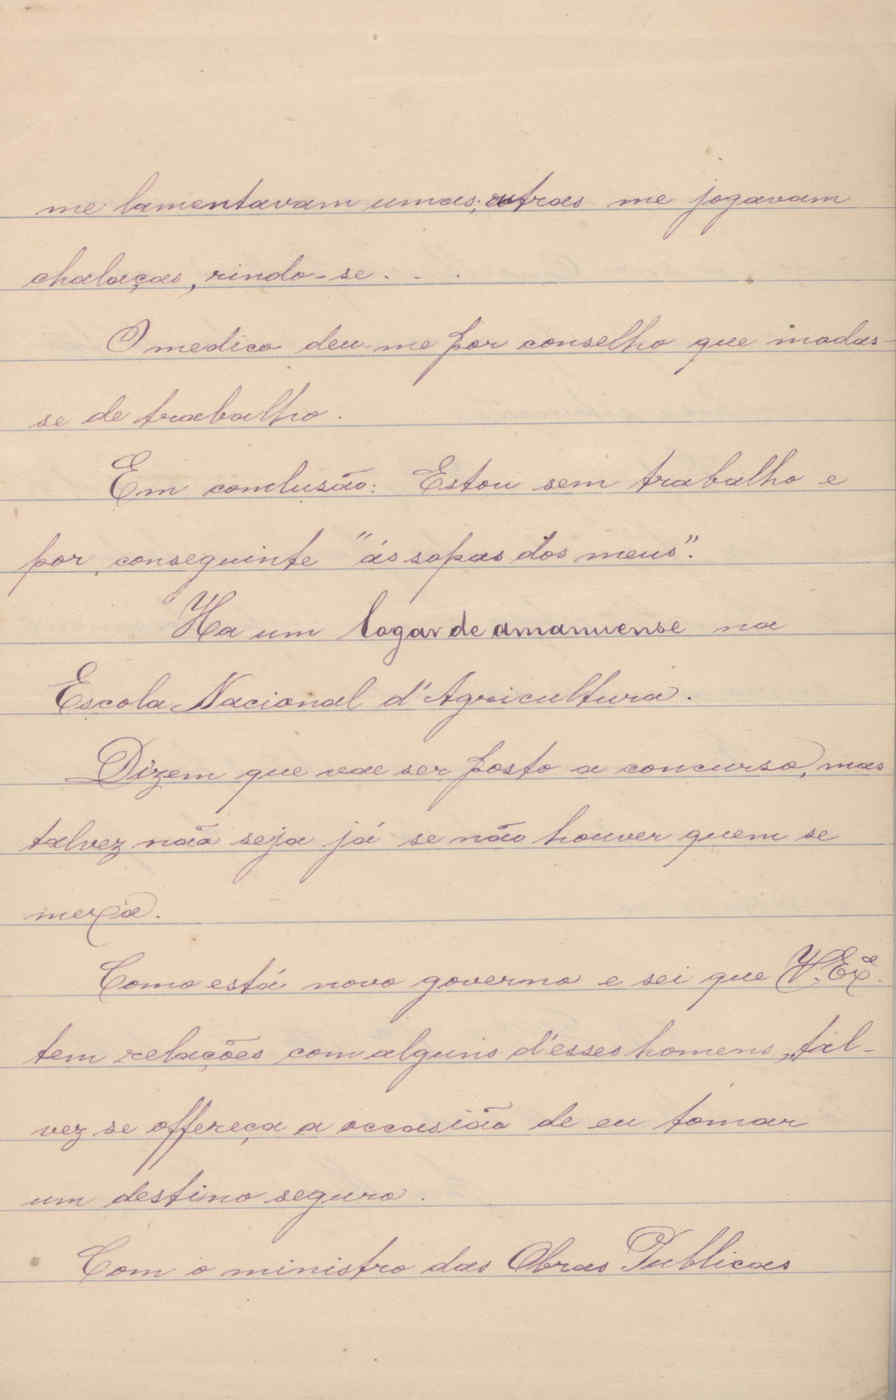 me lamentavam umas; outras me jogavam
chalaças, rindo-se . . .
O medico deu-me por conselho que mudas-
se de trabalho.
Em conclusão: Estou sem trabalho e
por conseguinte "ás sopas dos meus".
Ha um logar de amanuense na
Escola Nacional d'Agricultura.
Dizem que vae ser posto a concurso, mas
talvez não seja já se não houver quem se
mexa.
Como está novo governo e sei que V. Exª.
tem relações com alguns d'esses homens, tal-
vez se offereça a occasião de eu tomar
um destino seguro.
Com o ministro das Obras Publicas